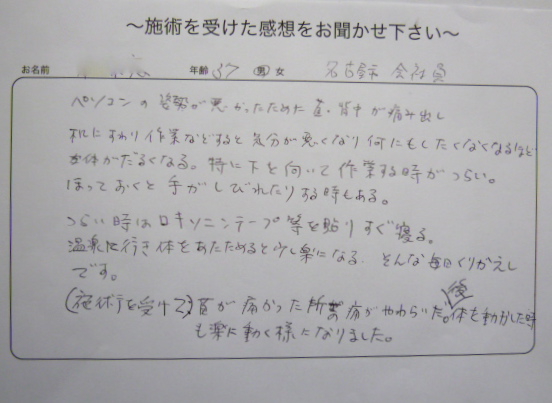 ～施術を受けた感想をお聞かせ下さい～
お名前 年齢 37 男 女 名古屋市 会社員
パソコンの姿勢が悪かったために首・背中が痛み出し
机にすわり作業などすると気分が悪くなり何にもしたくなくなるほど
お体がだるくなる。特に下を向いて作業する時がつらい。
ほっておくと手がしびれたりする時もある。
つらい時はロキソニンテープ等を貼りすぐ寝る。
温泉に行き体をあたためると少し楽になる そんな毎日くりかえし
です。
(施術を受けて)首が痛かった所の痛がやわらいだ。体を動かした時
も楽に動く様になりました。